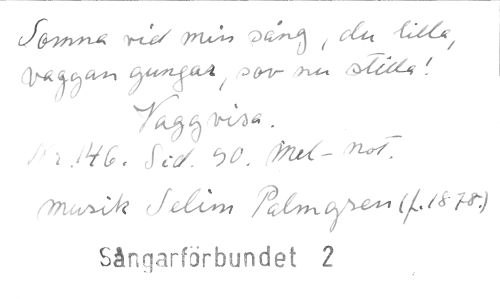 Somna vid min sång, du lilla,
vaggan gungar, sov nu stilla!
Vaggvisa.
Nr. 146. Sid. 90. Mel-not.
musik Selim Palmgren (f. 1878.)
Sångarförbundet 2